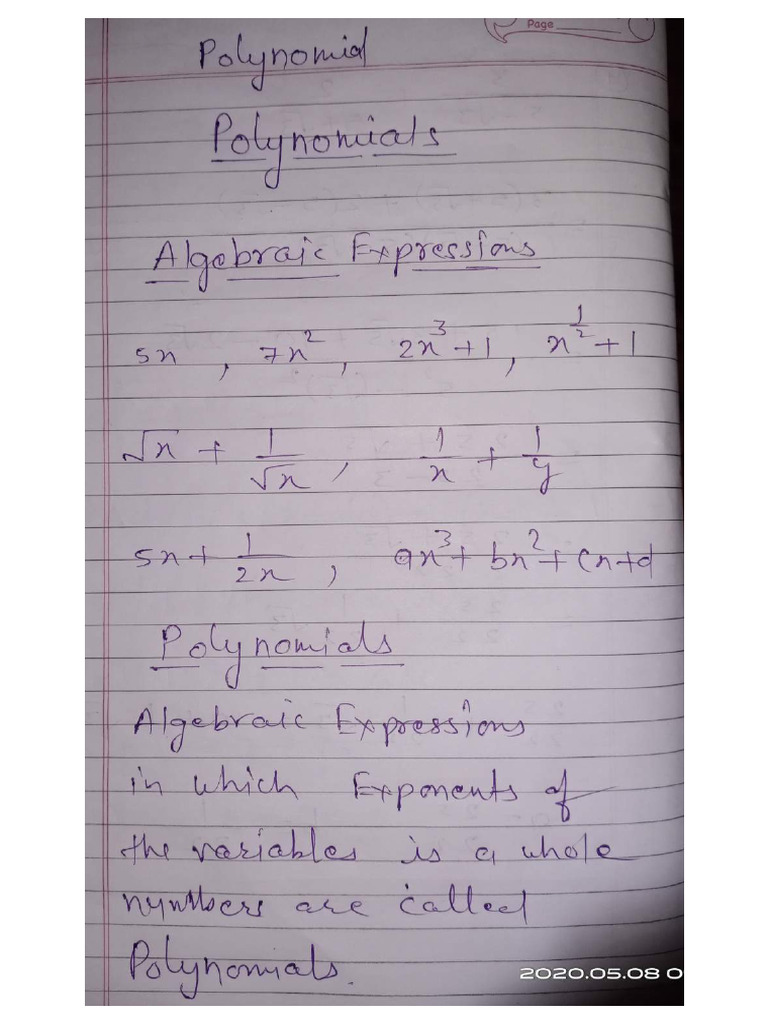 Page
Polynomial
Polynomials
Algebraic Expressions
5x , 7x² , 2x³+1 , x^(1/2)+1
√x + 1/√x , 1/x + 1/y
5x + 1/2x , ax³ + bx² + cx + d
Polynomials
Algebraic Expressions
in which Exponents of
the variables is a whole
numbers are called
Polynomials.
2020.05.08 0